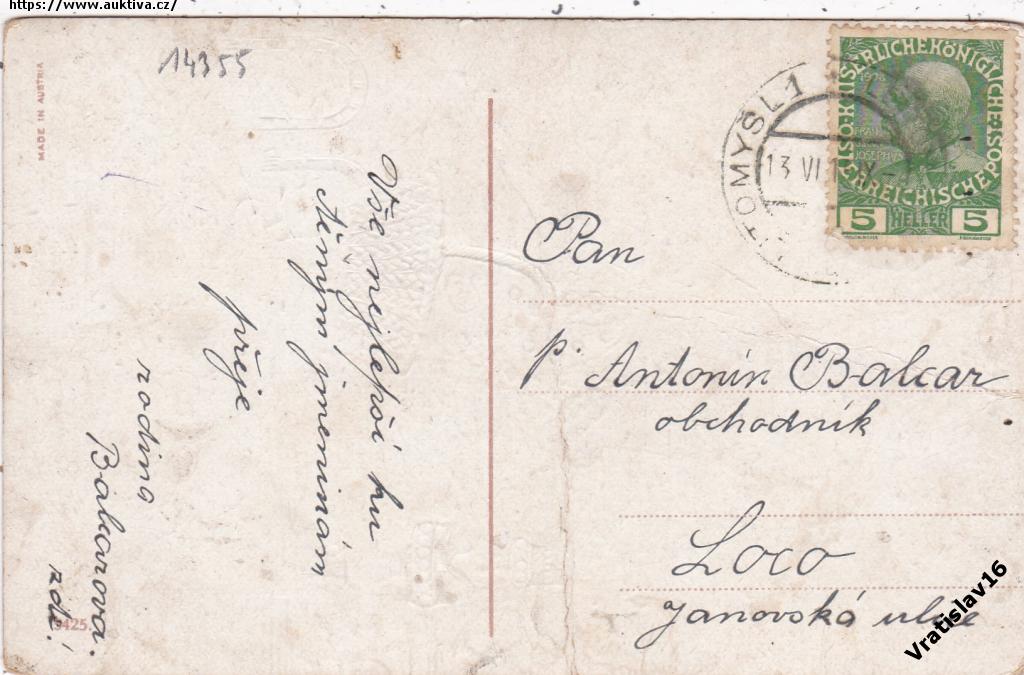 https://www.auktiva.cz/
14355
MADE IN AUSTRIA
Vše nejlepší ku
přeje
rodina
Balcarova
zde.
9425.
TOMYŠL 1
13 VI
KAISERLICHE KÖNIGLICHE
ÖSTERREICHISCHE POST
1908
5 HELLER 5
Pan
p. Antonín Balcar
obchodník
Loco
Janovská ulice
Vratislav16